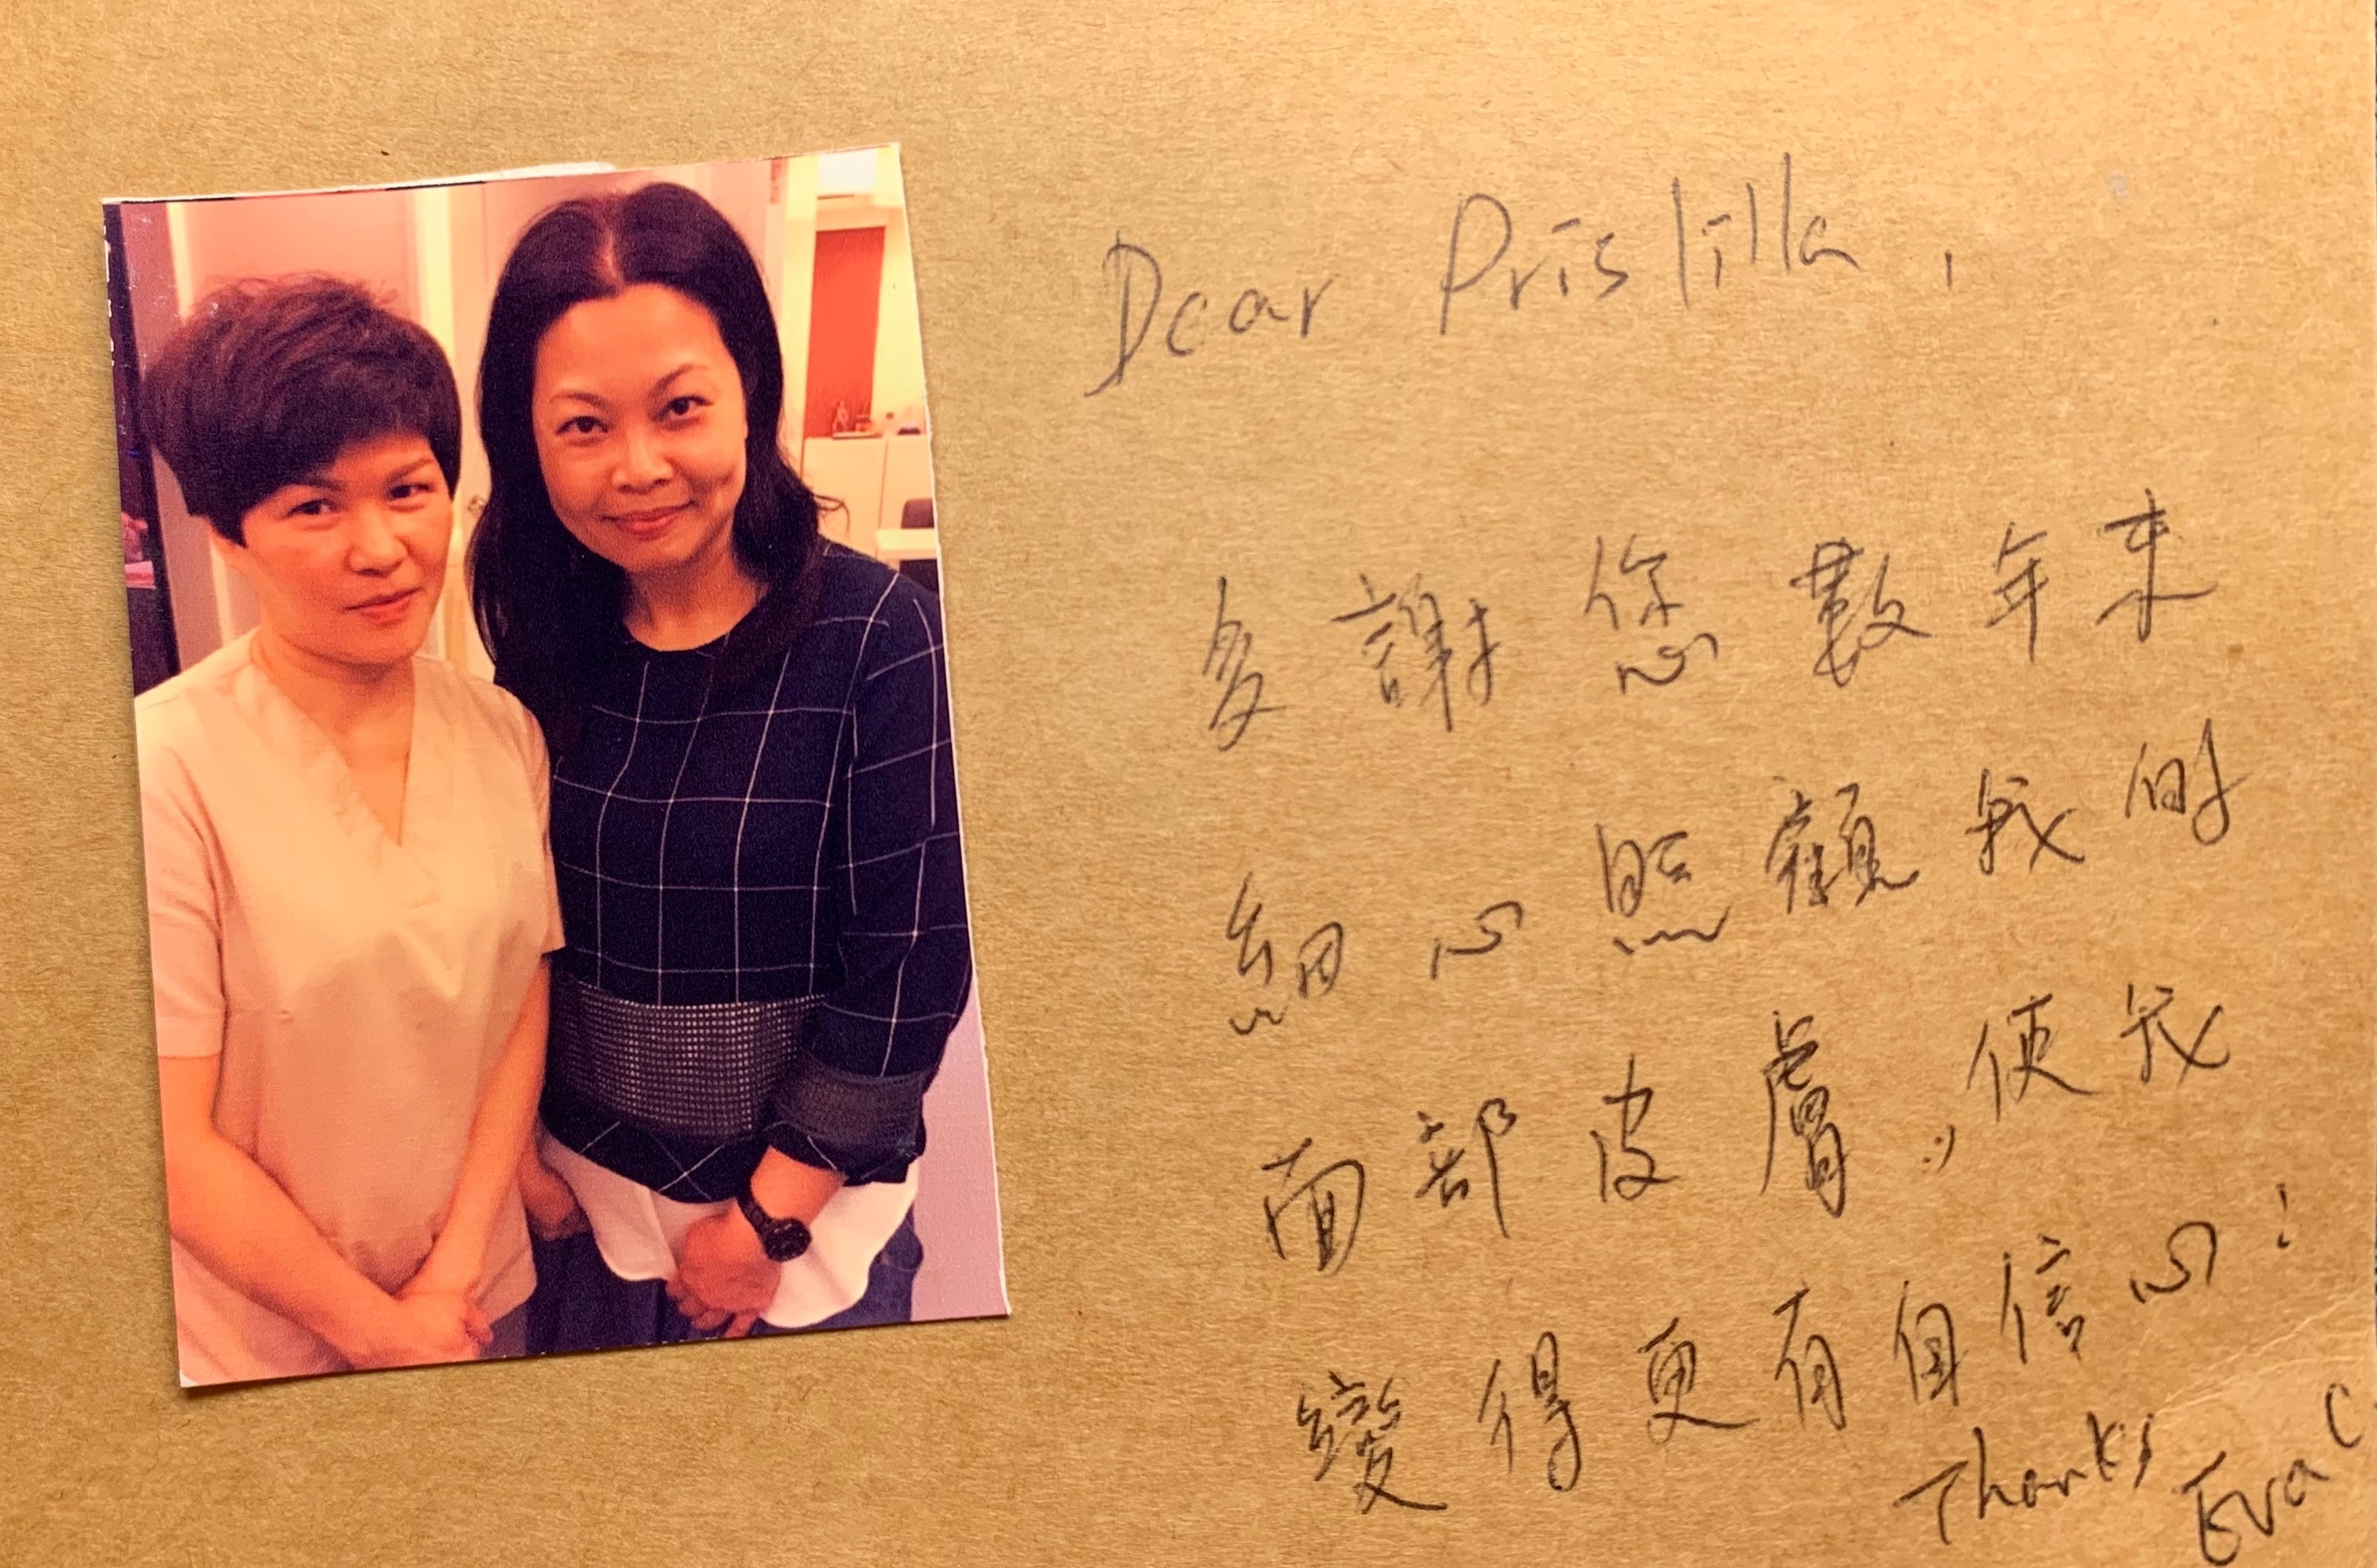 Dear Prislilla,
多謝您數年來
細心照顧我的
面部皮膚，使我
變得更有自信心！
Thanks
Eva C